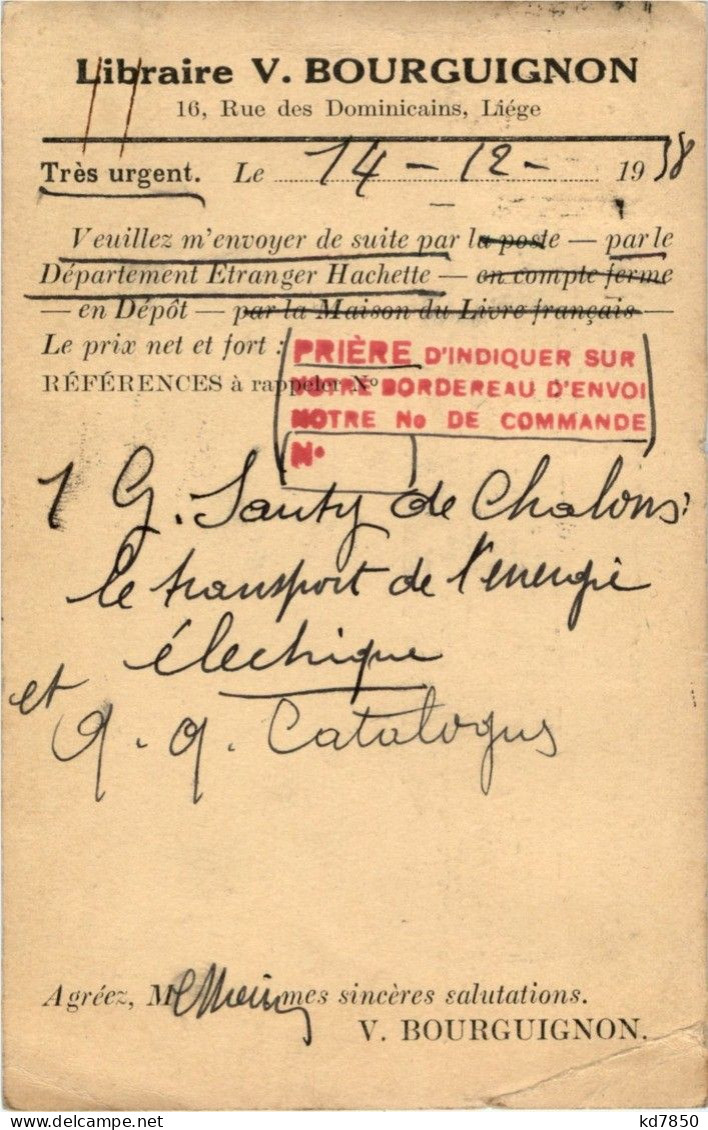 Libraire V. BOURGUIGNON
16, Rue des Dominicains, Liége
Très urgent. Le 14 - 12 - 1938
Veuillez m'envoyer de suite par la poste — par le
Département Etranger Hachette — en compte ferme
— en Dépôt — par la Maison du Livre français —
Le prix net et fort :
RÉFÉRENCES à rappeler No
PRIÈRE D'INDIQUER SUR
NOTRE BORDEREAU D'ENVOI
NOTRE No DE COMMANDE
N°
1 G. Sauty de Chalons:
le transport de l'énergie
électrique
et
q. q. Catalogus
Agréez, M mes sincères salutations.
V. BOURGUIGNON.
kd7850